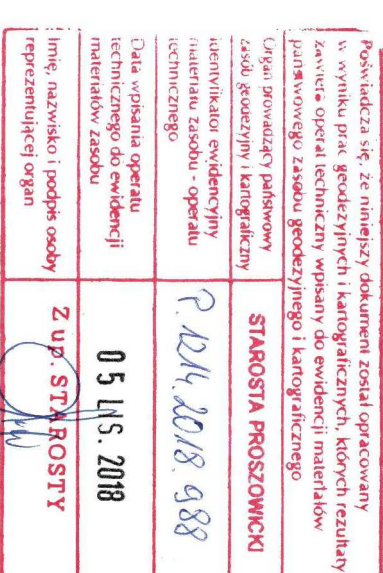 Poświadcza się, że niniejszy dokument został opracowany
w wyniku prac geodezyjnych i kartograficznych, których rezultaty
zawiera operat techniczny wpisany do ewidencji materiałów
państwowego zasobu geodezyjnego i kartograficznego
Organ prowadzący państwowy
zasób geodezyjny i kartograficzny
STAROSTA PROSZOWICKI
Identyfikator ewidencyjny
materiału zasobu - operatu
technicznego
P.1214.2018.988
Data wpisania operatu
technicznego do ewidencji
materiałów zasobu
05 LIS. 2018
Imię, nazwisko i podpis osoby
reprezentującej organ
Z up. STAROSTY